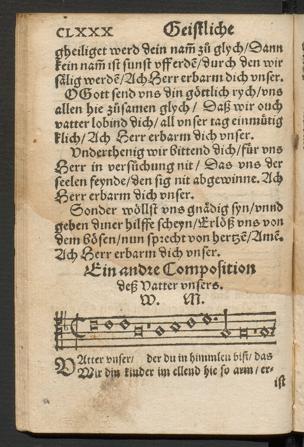 CLXXX Geistliche
gheiliget werd dein nam̃ zů glych/Dann
kein nam̃ ist sunst vff erdẽ/durch den wir
sälig werdẽ/Ach Herr erbarm dich vnser.
O Gott send vns din göttlich rych/vns
allen hie zůsamen glych/ Daß wir ouch
vatter lobind dich/all vnser tag einmütig
klich/Ach Herr erbarm dich vnser.
Vnderthenig wir bittend dich/für vns
Herr in versůchung nit/ Das vns der
seelen feynde/den sig nit abgewinne. Ach
Herr erbarm dich vnser.
Sonder wöllst vns gnädig syn/vnnd
geben diner hilffe scheyn/Erlöß vns von
dem bösen/nun sprecht von hertzẽ/Amẽ.
Ach Herr erbarm dich vnser.
Ein andre Composition
deß Vatter vnsers.
W. M.
VAtter vnser/ der du in himmlen bist/ das
Wir din kinder im ellend hie so arm/ er-
ist